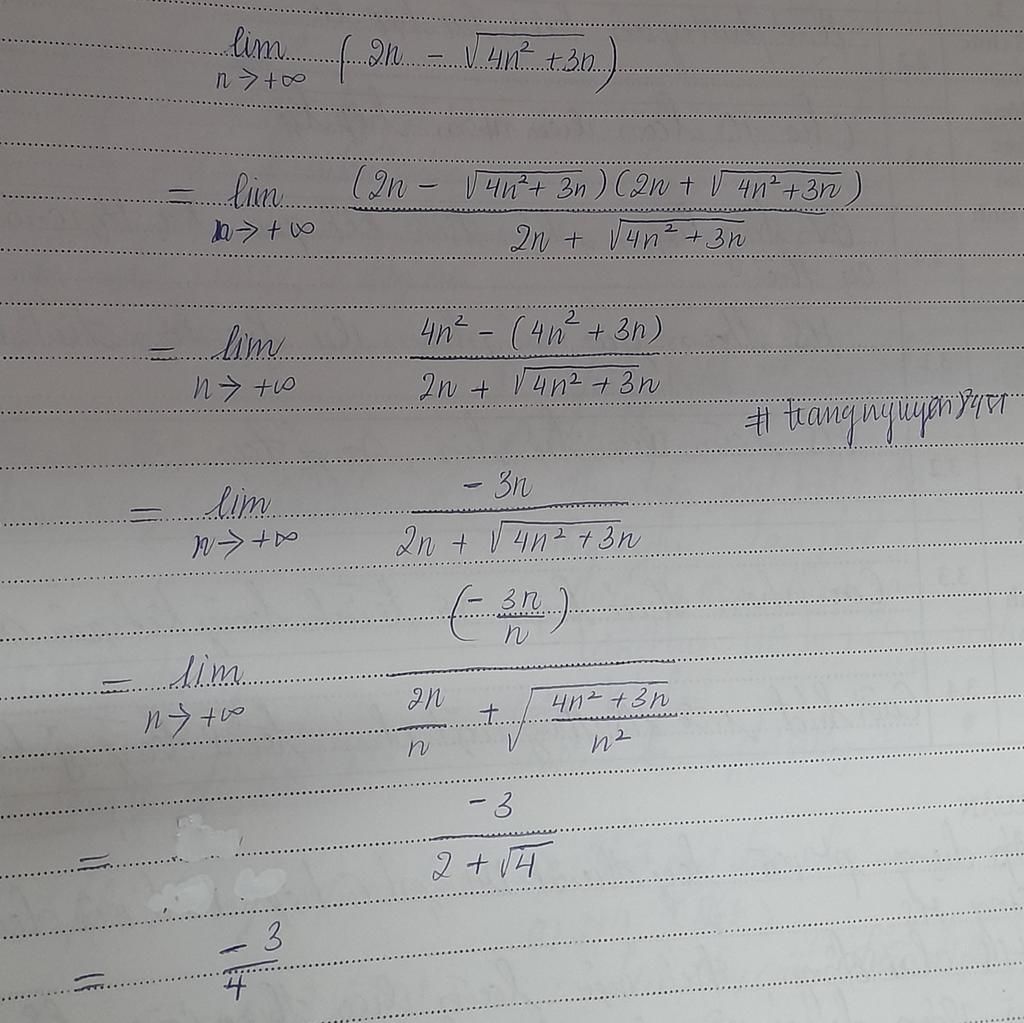 lim n→+∞ (2n − √(4n² + 3n))
= lim n→+∞ (2n − √(4n² + 3n))(2n + √(4n² + 3n)) / (2n + √(4n² + 3n))
= lim n→+∞ (4n² − (4n² + 3n)) / (2n + √(4n² + 3n))
= lim n→+∞ −3n / (2n + √(4n² + 3n))
= lim n→+∞ (−3n/n) / (2n/n + √((4n² + 3n)/n²))
= −3 / (2 + √4)
= −3/4